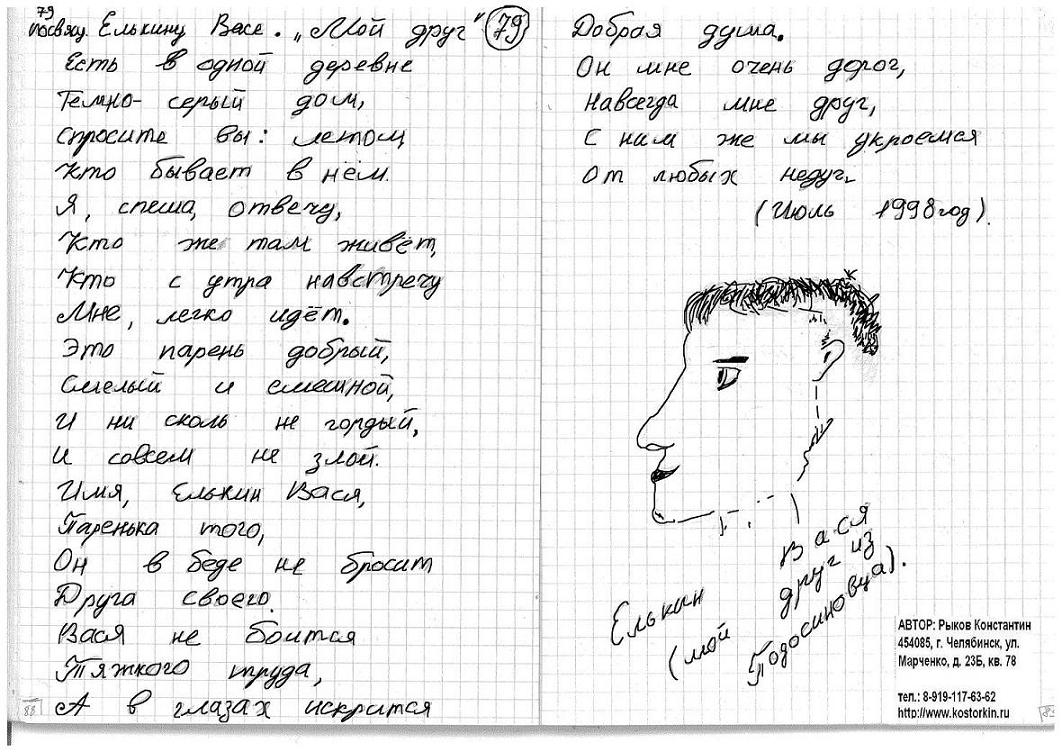 79
посвящ. Елькину Васе. „Мой друг" 79
Есть в одной деревне
Темно- серый дом,
Спросите вы: летом,
Кто бывает в нём.
Я, спеша, отвечу,
Кто же там живёт,
Кто с утра навстречу
Мне, легко идёт.
Это парень добрый,
Смелый и смешной,
И ни сколь не гордый,
И совсем не злой.
Имя, Елькин Вася,
Паренька того,
Он в беде не бросит
Друга своего.
Вася не боится
Тяжкого труда,
А в глазах искрится
88
Добрая душа.
Он мне очень дорог,
Навсегда мне друг,
С ним же мы укроемся
От любых недуг.
(Июль 1998год).
Елькин Вася
(мой друг из
Подосиновца).
АВТОР: Рыков Константин
454085, г. Челябинск, ул.
Марченко, д. 23Б, кв. 78
тел.: 8-919-117-63-62
http://www.kostorkin.ru